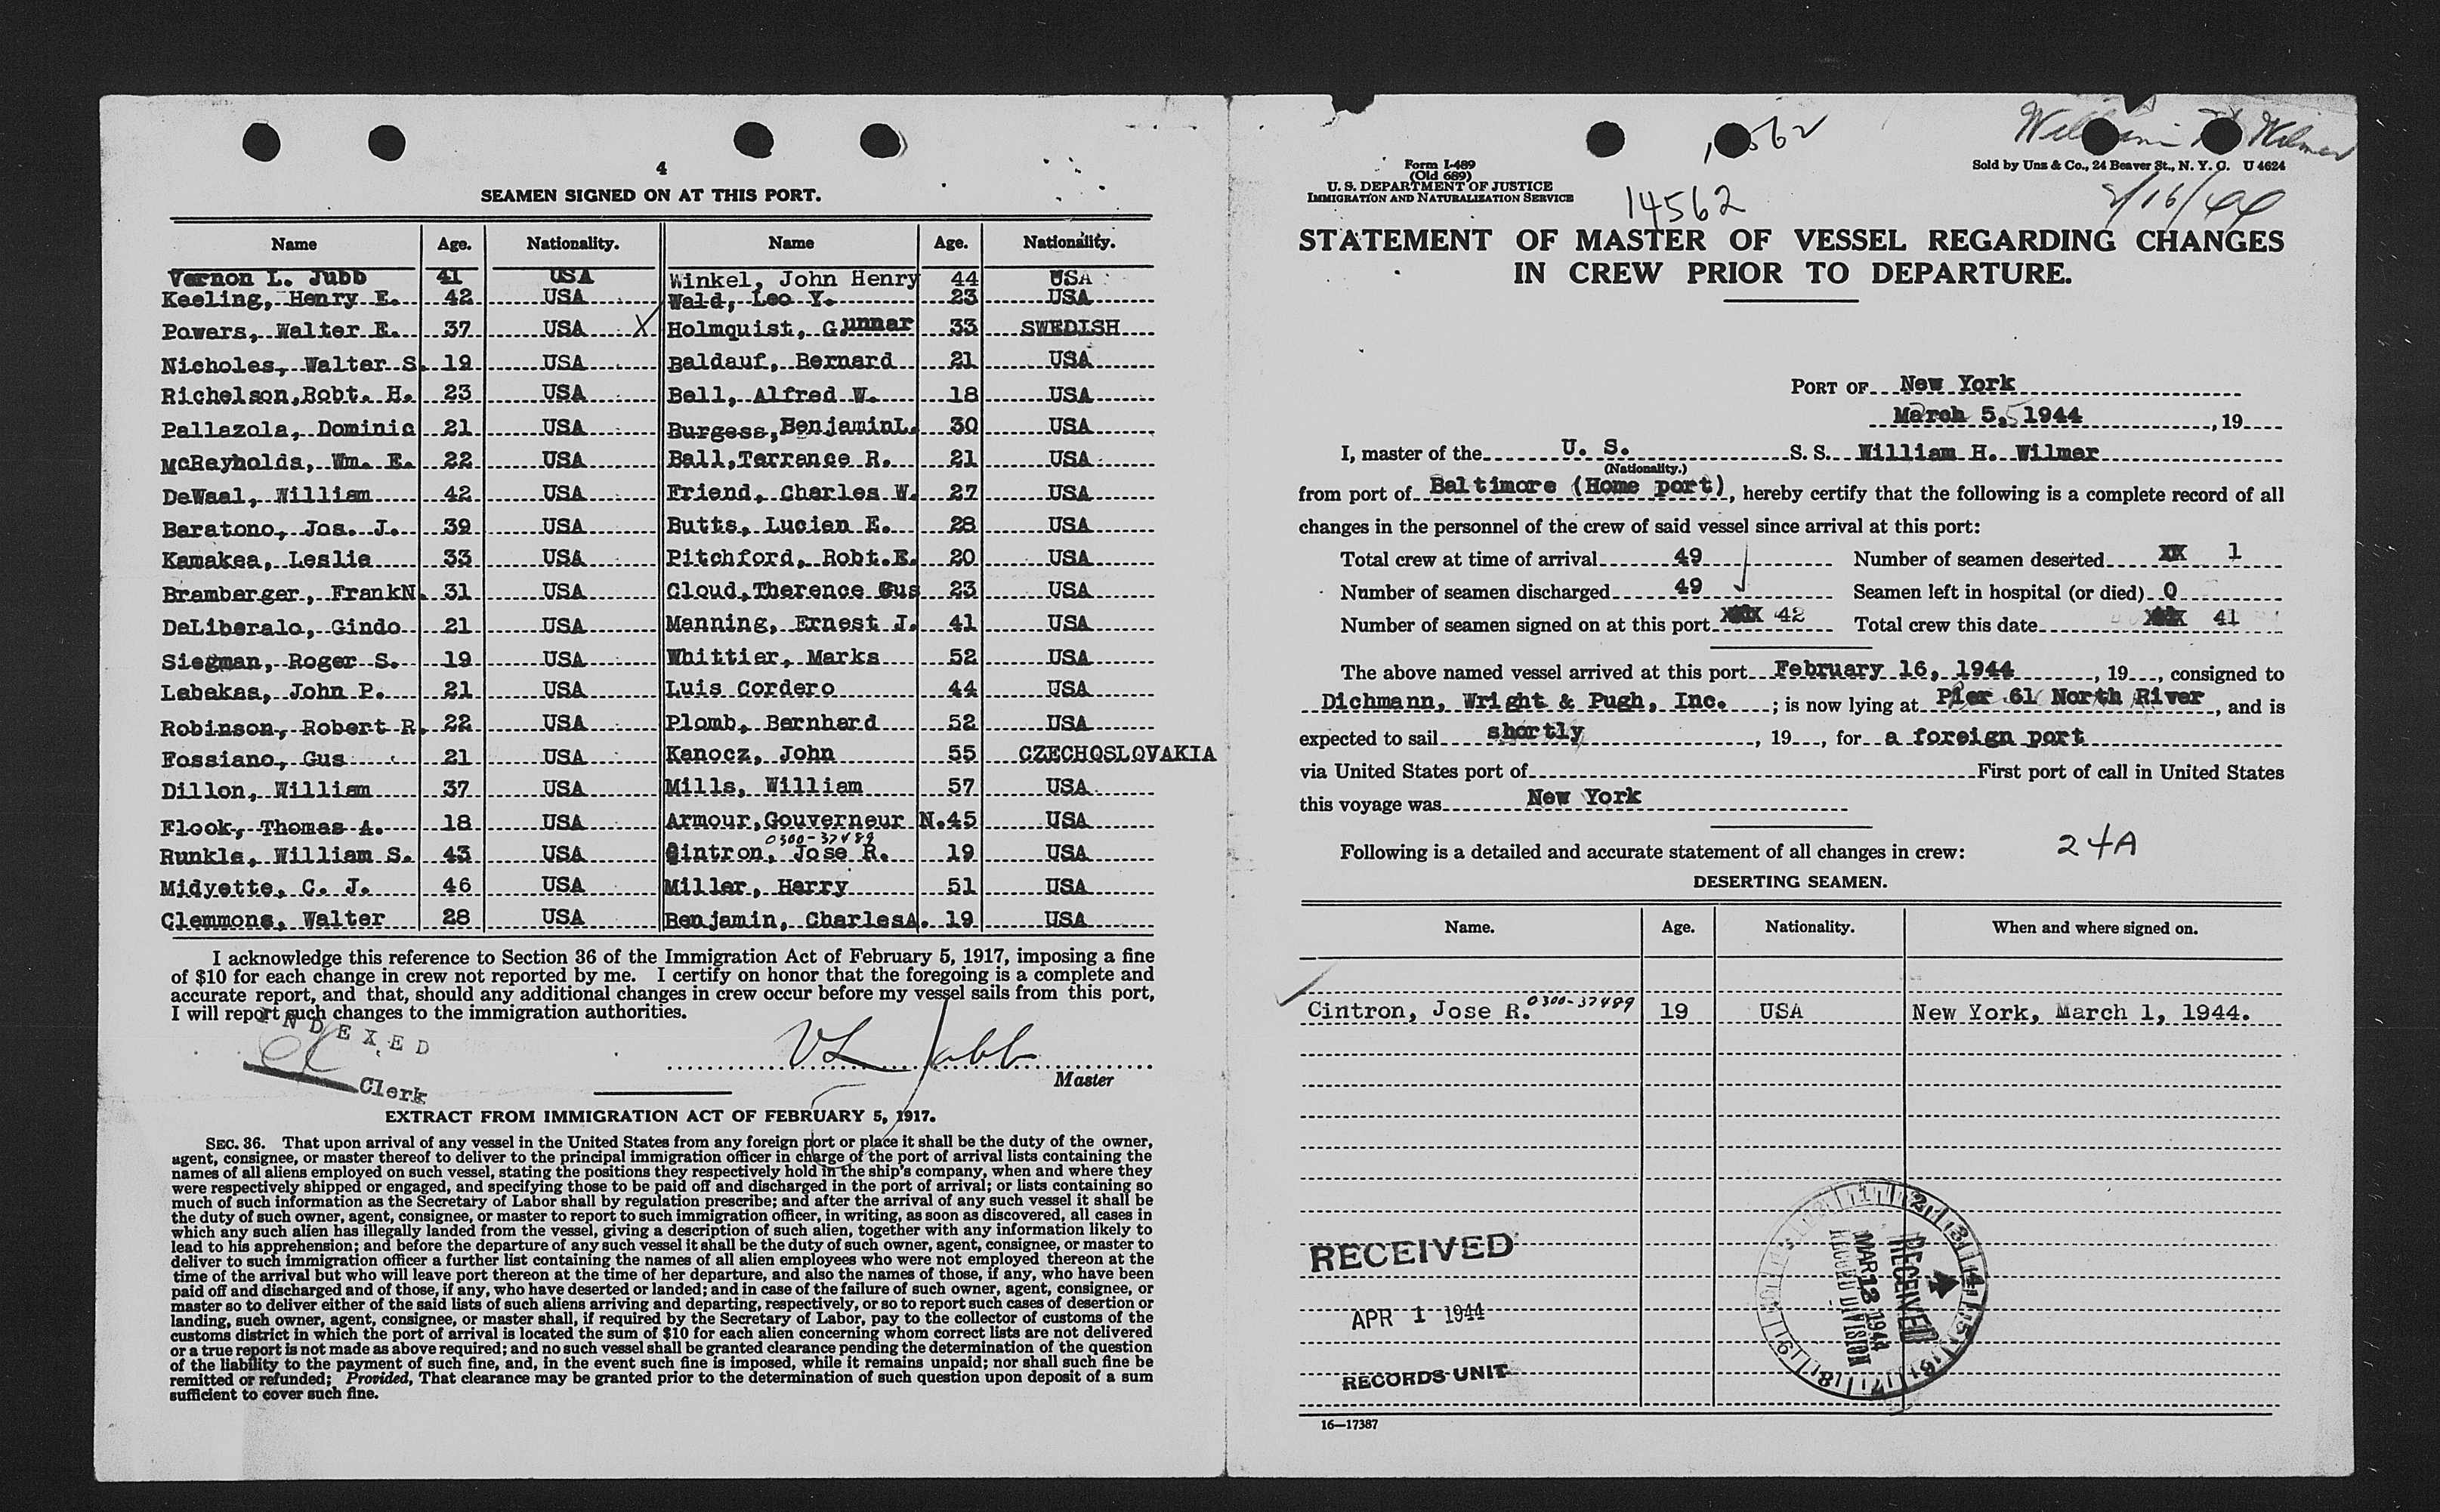 4
SEAMEN SIGNED ON AT THIS PORT.
Name Age. Nationality. Name Age. Nationality.
Vernon L. Jubb 41 USA Winkel, John Henry 44 USA
Keeling, Henry E. 42 USA Wald, Leo Y. 23 USA
Powers, Walter E. 37 USA X Holmquist, Gunnar 33 SWEDISH
Nicholes, Walter S. 19 USA Baldauf, Bernard 21 USA
Richelson, Robt. H. 23 USA Bell, Alfred W. 18 USA
Pallazola, Dominic 21 USA Burgess, BenjaminL. 30 USA
McReyholds, Wm. E. 22 USA Ball, Terrance R. 21 USA
DeWaal, William 42 USA Friend, Charles W. 27 USA
Baratono, Jos. J. 39 USA Butts, Lucien E. 28 USA
Kamakea, Leslie 33 USA Pitchford, Robt.E. 20 USA
Bramberger, FrankN. 31 USA Cloud, Therence Gus 23 USA
DeLiberalo, Gindo 21 USA Manning, Ernest J. 41 USA
Siegman, Roger S. 19 USA Whittier, Marks 52 USA
Labekas, John P. 21 USA Luis Cordero 44 USA
Robinson, Robert R. 22 USA Plomb, Bernhard 52 USA
Fossiano, Gus 21 USA Kanocz, John 55 CZECHOSLOVAKIA
Dillon, William 37 USA Mills, William 57 USA
Flook, Thomas A. 18 USA Armour, Gouverneur N. 45 USA
0300-37489
Runkle, William S. 43 USA Cintron, Jose R. 19 USA
Midyette, C. J. 46 USA Miller, Harry 51 USA
Clemmons, Walter 28 USA Benjamin, CharlesA. 19 USA
I acknowledge this reference to Section 36 of the Immigration Act of February 5, 1917, imposing a fine
of $10 for each change in crew not reported by me. I certify on honor that the foregoing is a complete and
accurate report, and that, should any additional changes in crew occur before my vessel sails from this port,
I will report such changes to the immigration authorities.
INDEXED
Clerk
VL Jubb
Master
EXTRACT FROM IMMIGRATION ACT OF FEBRUARY 5, 1917.
SEC. 36. That upon arrival of any vessel in the United States from any foreign port or place it shall be the duty of the owner,
agent, consignee, or master thereof to deliver to the principal immigration officer in charge of the port of arrival lists containing the
names of all aliens employed on such vessel, stating the positions they respectively hold in the ship's company, when and where they
were respectively shipped or engaged, and specifying those to be paid off and discharged in the port of arrival; or lists containing so
much of such information as the Secretary of Labor shall by regulation prescribe; and after the arrival of any such vessel it shall be
the duty of such owner, agent, consignee, or master to report to such immigration officer, in writing, as soon as discovered, all cases in
which any such alien has illegally landed from the vessel, giving a description of such alien, together with any information likely to
lead to his apprehension; and before the departure of any such vessel it shall be the duty of such owner, agent, consignee, or master to
deliver to such immigration officer a further list containing the names of all alien employees who were not employed thereon at the
time of the arrival but who will leave port thereon at the time of her departure, and also the names of those, if any, who have been
paid off and discharged and of those, if any, who have deserted or landed; and in case of the failure of such owner, agent, consignee, or
master so to deliver either of the said lists of such aliens arriving and departing, respectively, or so to report such cases of desertion or
landing, such owner, agent, consignee, or master shall, if required by the Secretary of Labor, pay to the collector of customs of the
customs district in which the port of arrival is located the sum of $10 for each alien concerning whom correct lists are not delivered
or a true report is not made as above required; and no such vessel shall be granted clearance pending the determination of the question
of the liability to the payment of such fine, and, in the event such fine is imposed, while it remains unpaid; nor shall such fine be
remitted or refunded; Provided, That clearance may be granted prior to the determination of such question upon deposit of a sum
sufficient to cover such fine.
William H Wilmer
Form I-489
(Old 689)
U. S. DEPARTMENT OF JUSTICE
IMMIGRATION AND NATURALIZATION SERVICE
Sold by Unz & Co., 24 Beaver St., N. Y. C. U 4624
14562
2/16/44
STATEMENT OF MASTER OF VESSEL REGARDING CHANGES
IN CREW PRIOR TO DEPARTURE.
PORT OF New York
March 5, 1944, 19
I, master of the U. S. S. S. William H. Wilmer
(Nationality.)
from port of Baltimore (Home port), hereby certify that the following is a complete record of all
changes in the personnel of the crew of said vessel since arrival at this port:
Total crew at time of arrival 49 Number of seamen deserted XX 1
Number of seamen discharged 49 Seamen left in hospital (or died) 0
Number of seamen signed on at this port 42 Total crew this date 41
The above named vessel arrived at this port February 16, 1944, 19, consigned to
Dichmann, Wright & Pugh, Inc. ; is now lying at Pier 61 North River, and is
expected to sail shortly, 19, for a foreign port
via United States port of First port of call in United States
this voyage was New York
Following is a detailed and accurate statement of all changes in crew: 24A
DESERTING SEAMEN.
Name. Age. Nationality. When and where signed on.
Cintron, Jose R. 0300-37489 19 USA New York, March 1, 1944.
RECEIVED
APR 1 1944
RECORDS UNIT
RECEIVED
MAR 13 1944
RECORD DIVISION
16—17387